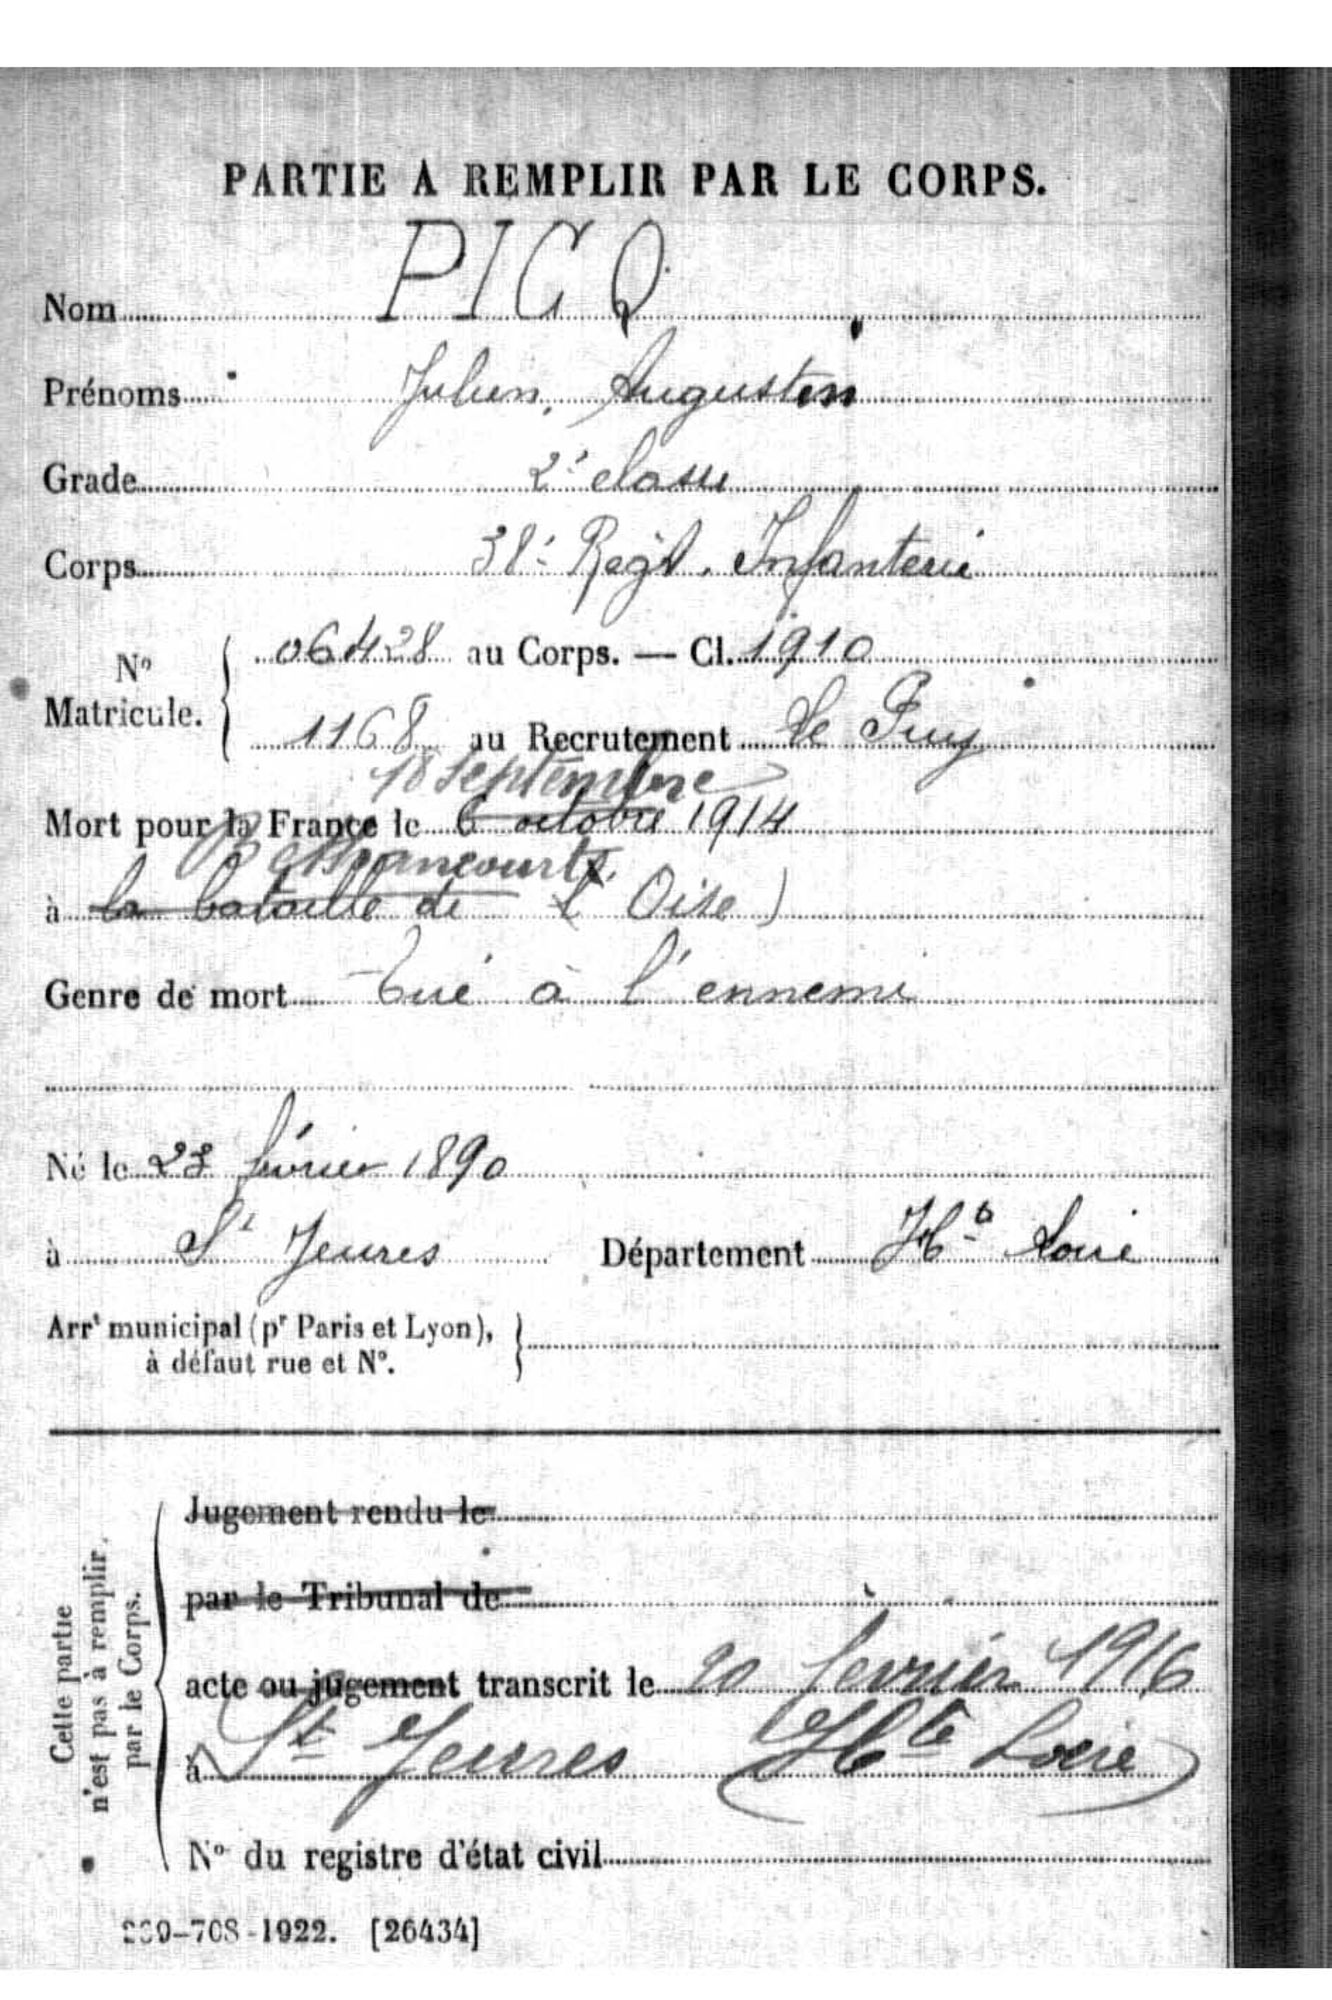 PARTIE A REMPLIR PAR LE CORPS.
Nom PICQ
Prénoms Julien, Augustin
Grade 2e classe
Corps 38e Regt. Infanterie
No Matricule. 06428 au Corps. — Cl. 1910
1168 au Recrutement Le Puy
18 Septembre
Mort pour la France le 6 octobre 1914
Béthancourt
à la bataille de (Oise)
Genre de mort Tué à l'ennemi
Né le 23 février 1890
à St Jeures Département Hte Loire
Arrt municipal (pr Paris et Lyon),
à défaut rue et No.
Jugement rendu le
par le Tribunal de
acte ou jugement transcrit le 20 février 1916
à St Jeures (Hte Loire)
No du registre d'état civil
Cette partie
n'est pas à remplir
par le Corps.
-708-1922. [26434]